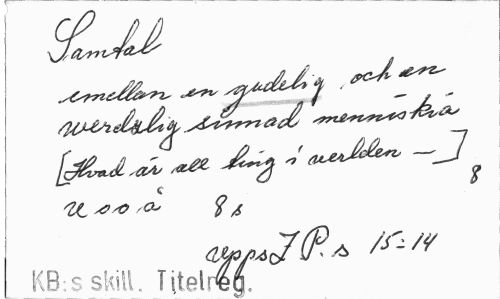 Samtal
emellan en gudelig och en
werdslig sinnad menniskia
[Hvad är all ting i verlden —]
8
u o o å 8 s
Upps Z P. s 15:14
KB:s skill. Titelreg.